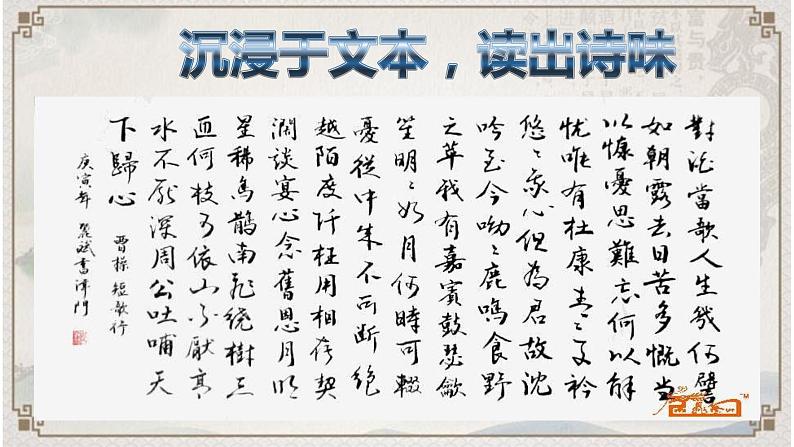 沉浸于文本，读出诗味
對酒當歌人生幾何譬
如朝露去日苦多慨當
以慷憂思難忘何以解
忧唯有杜康青々子衿
悠々我心但為君故沈
吟至今呦々鹿鳴食野
之苹我有嘉賓鼓瑟
笙明々如月何時可輟
憂從中来不可斷絕
越陌度阡枉用相存契
濶談宴心念舊恩月明
星稀烏鵲南飛繞樹三
匝何枝可依山不厭高
水不厭深周公吐哺天
下歸心
曹操短歌行
庚寅年 麗斌書津門